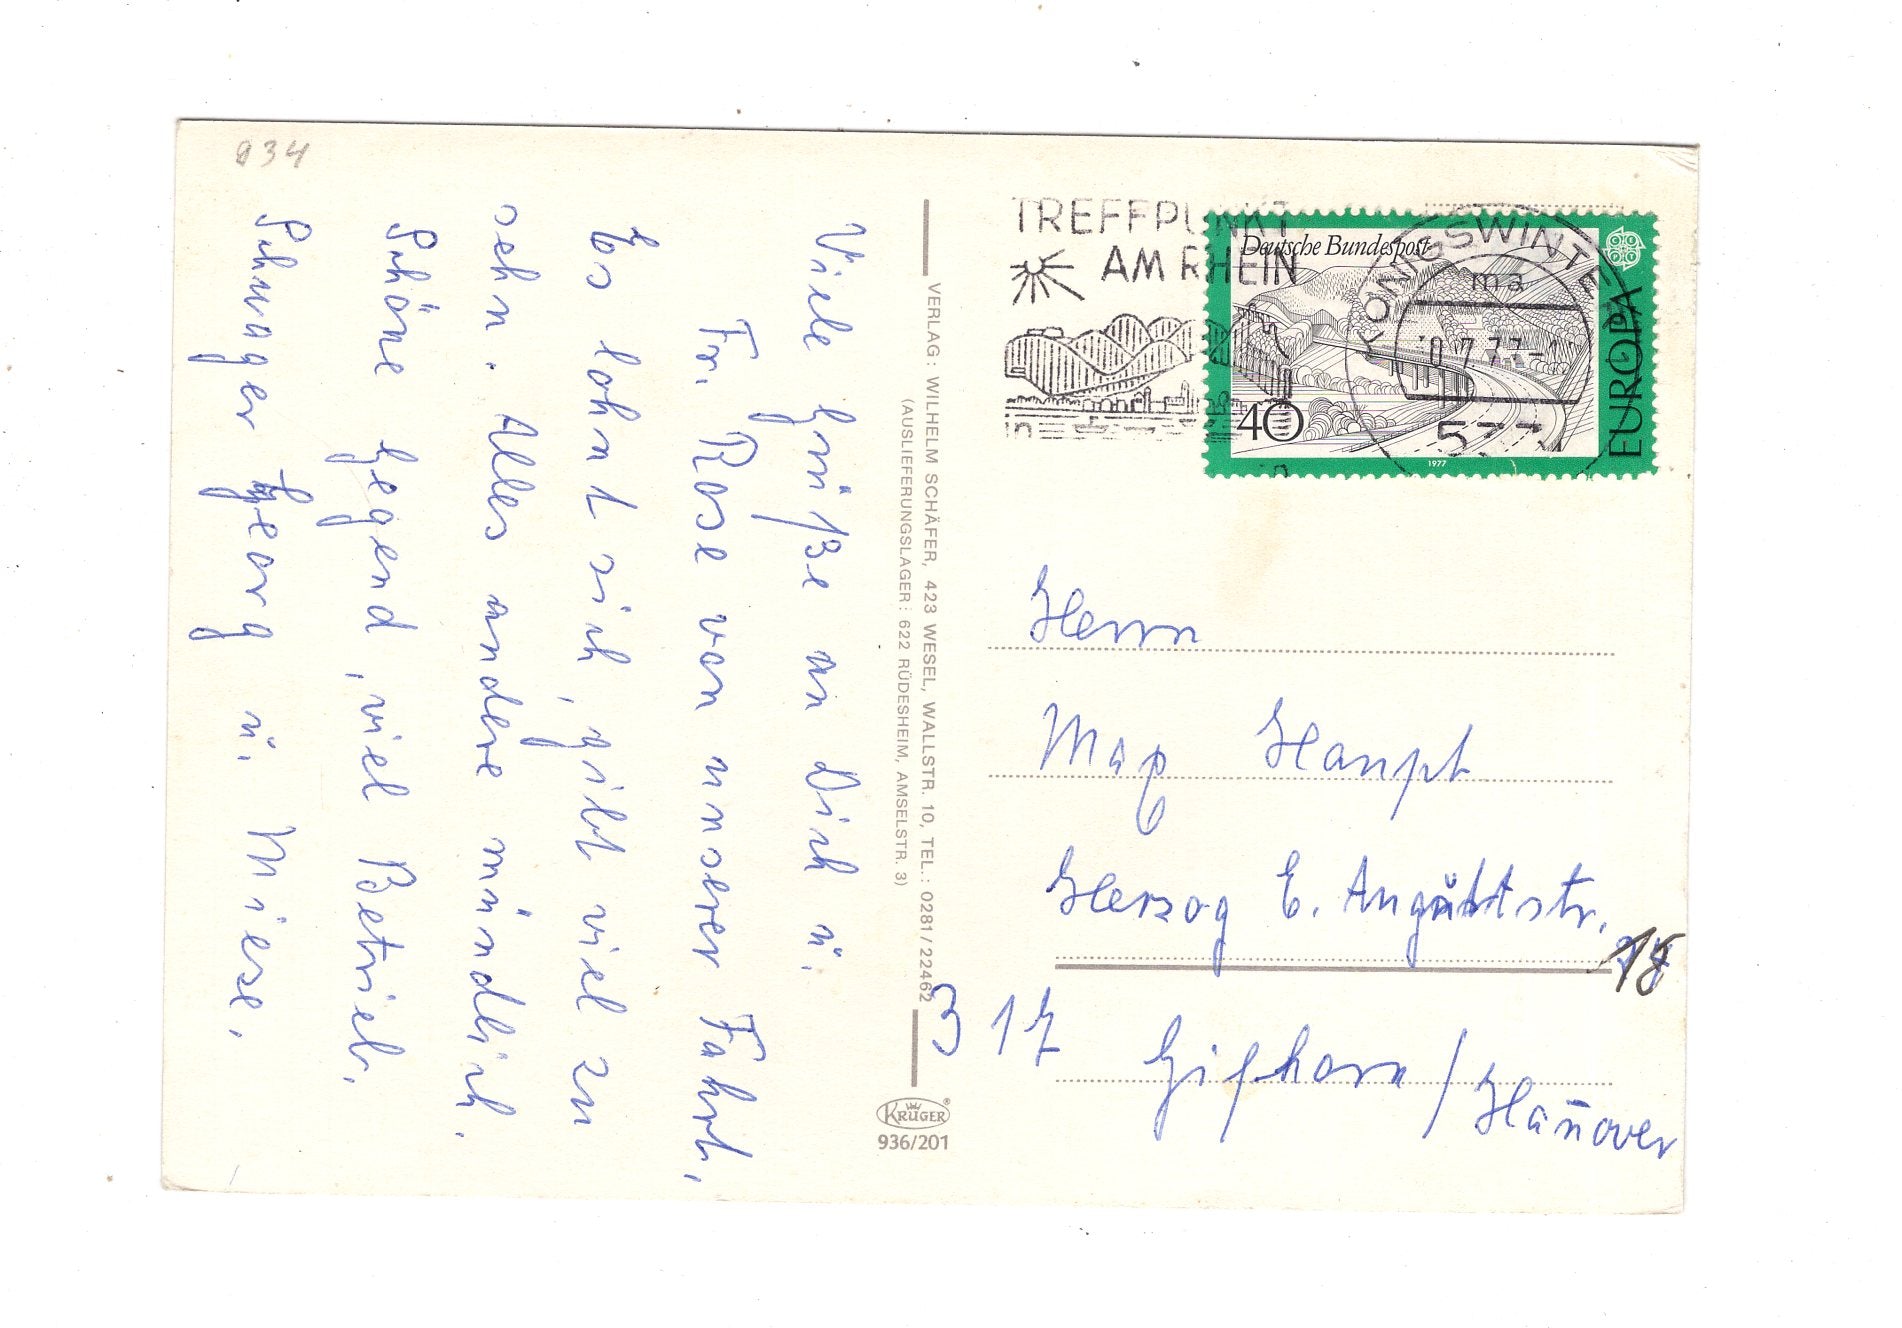 934
Viele Grüße an Dich u.
Fr. Rose von unserer Fahrt,
Es lohnt sich, gibt viel zu
sehn. Alles andere mündlich.
Schöne Gegend, viel Betrieb.
Schwager Georg u. Miese.
VERLAG: WILHELM SCHÄFER, 423 WESEL, WALLSTR. 10, TEL.: 0281/22462
(AUSLIEFERUNGSLAGER: 622 RÜDESHEIM, AMSELSTR. 3)
KRÜGER
936/201
TREFFPUNKT
AM RHEIN
in
Deutsche Bundespost
40
1977
EUROPA
KÖNIGSWINTE
ma
577
Herrn
Max Haupt
Herzog E. Auguststr.
18
317 Gifhorn / Han̄over